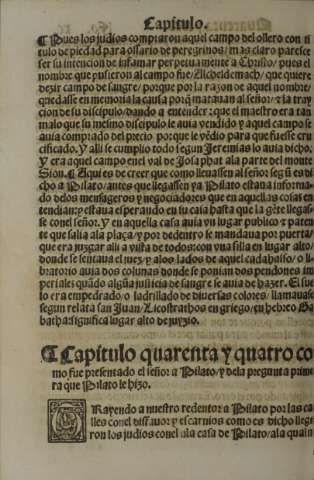 Capitulo.
¶ Pues los judios compraron aquel campo del ollero con ti
tulo de piedad para ossario de peregrinos/ mas claro paresce
ser su intencion de infamar perpetuamente a Christo/ pues el
nombre que pusieron al campo fue/ Alcheldemach/ que quiere
dezir campo de sangre/ porque por la razon de aquel nombre/
quedasse en memoria la causa porq̃ matauan al señor: ⁊ la tray
cion de su discipulo/ dando a entender: que el maestro era tan
malo que su mesmo discipulo le auia vendido y aquel campo se
auia comprado del precio porque le vẽdio para que fuesse cru
cificado. Y alli se cumplio todo segun Jeremias lo auia dicho.
Y era aquel campo en el val de Josaphat ala parte del monte
Sion. ¶ Aqui es de creer que como lleuassen al señor segũ es di
cho a Pilato/ antes que llegassen ya Pilato estaua informa
do delos mensageros y negociadores que en aquellas cosas en
tendian: y estaua esperando en su casa hasta que la gẽte llegas
se con el señor. Y en aquella casa auia vn lugar publico ⁊ paten
te que salia ala plaça/ y por de dentro se mandaua por puerta/
que era juzgar alli a vista de todos: con vna silla en lugar alto/
donde se sentaua el juez/ y alos lados de aquel cadahalso/ o li
bratorio auia dos colunas donde se ponian dos pendones im
periales quãdo algũa justicia de sangre se auia de hazer. El sue
lo era empedrado/ o ladrillado de diuersas colores/ llamauase
segun relata san Juan/ Licostrathos en griego/ en hebreo Ga
batha: significa lugar alto de juyzio.
¶ Capitulo quarenta y quatro co
mo fue presentado el señor a Pilato/ y dela pregunta prime
ra que Pilato le hizo.
TRayendo a nuestro redentor a Pilato por las ca
lles con el disfauor y escarnios como es dicho llega
ron los judios con el ala casa de Pilato/ ala qual n